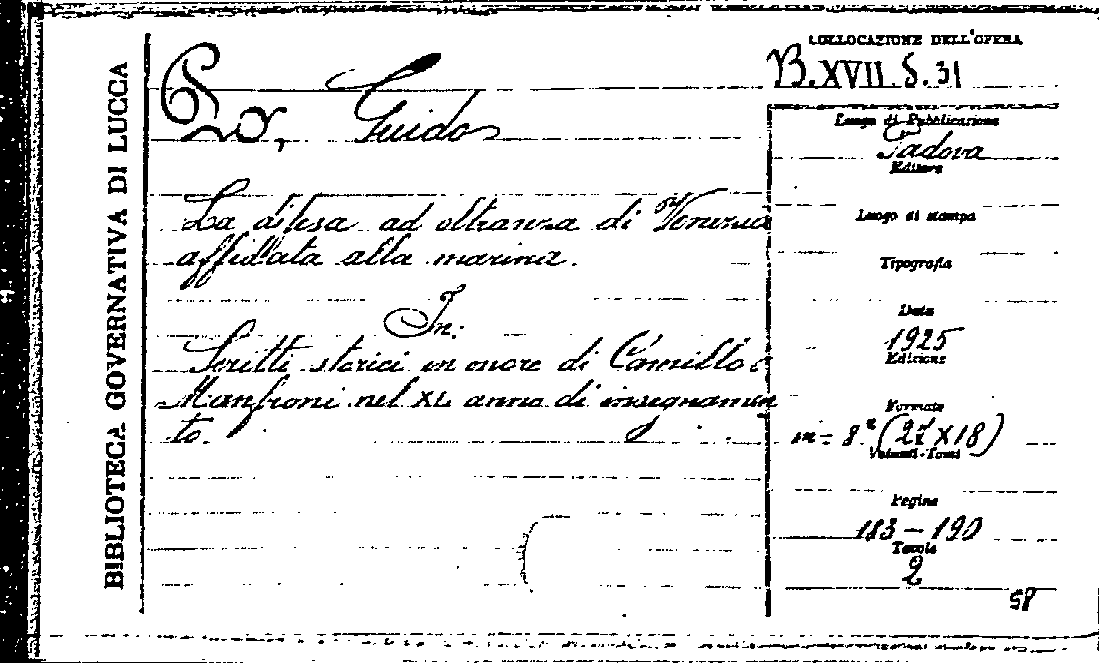 BIBLIOTECA GOVERNATIVA DI LUCCA
Po, Guido
La difesa ad oltranza di Venezia
affidata alla marina.
In:
Scritti storici in onore di Camillo
Manfroni nel XL anno di insegnamen
to.
COLLOCAZIONE DELL'OPERA
B.XVII.S.31
Luogo di Pubblicazione
Padova
Editore
Luogo di stampa
Tipografia
Data
1925
Edizione
Formato
in-8° (27X18)
Volumi-Tomi
Pagine
183-190
Tavole
2
58